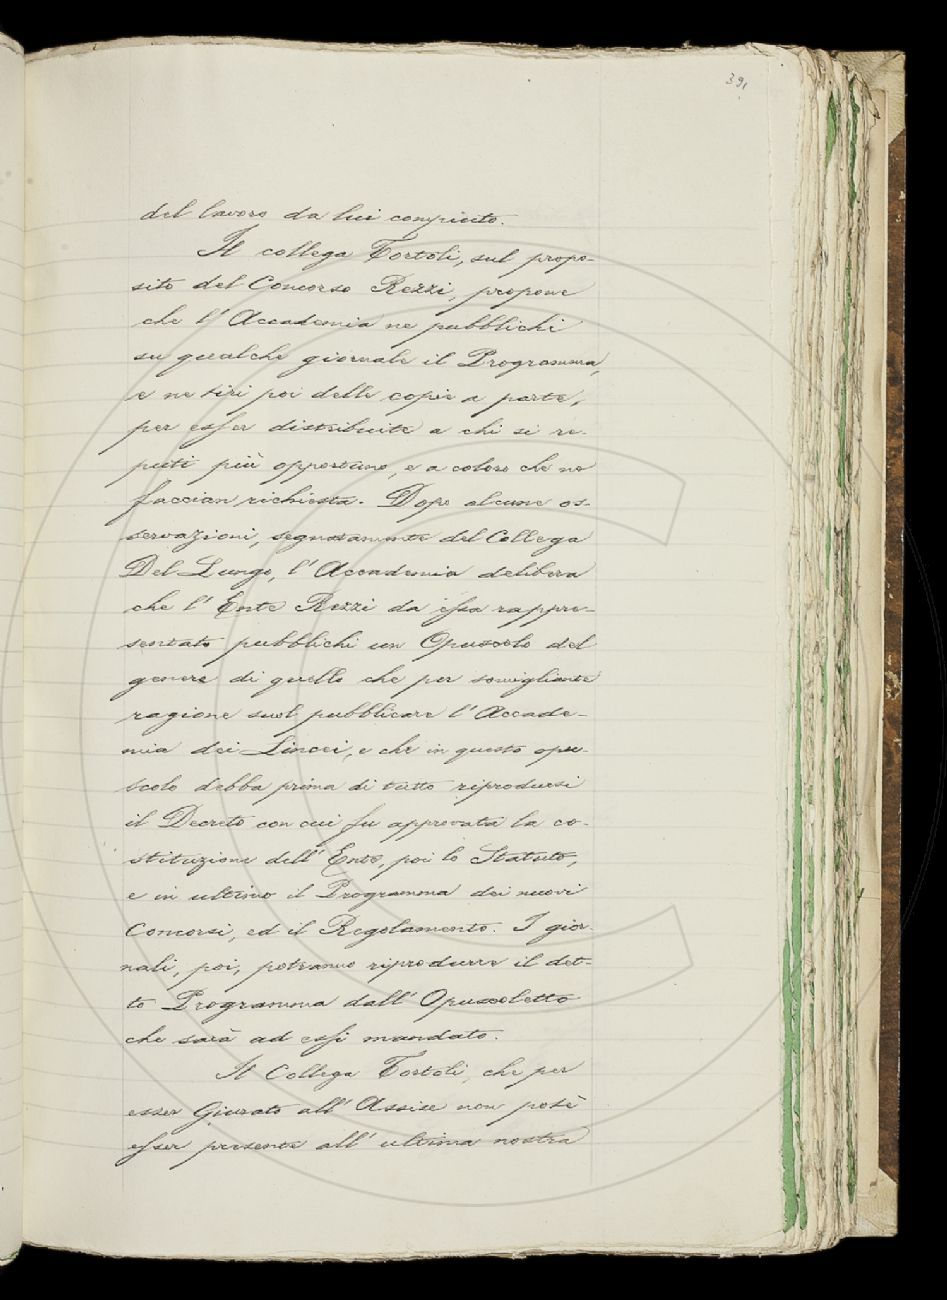 391
del lavoro da lui compiuto.
Il collega Tortoli, sul propo-
sito del Concorso Rezzi, propone
che l'Accademia ne pubblichi
su qualche giornale il Programma,
e ne tiri poi delle copie a parte,
per esser distribuite a chi si re-
puti più opportuno, e a coloro che ne
faccian richiesta. Dopo alcune os-
servazioni, segnatamente del Collega
Del Lungo, l'Accademia delibera
che l'Ente Rezzi da essa rappre-
sentato pubblichi un Opuscolo del
genere di quello che per somigliante
ragione suol pubblicare l'Accade-
mia dei Lincei, e che in questo opu-
scolo debba prima di tutto riprodursi
il Decreto con cui fu approvata la co-
stituzione dell'Ente, poi lo Statuto,
e in ultimo il Programma dei nuovi
Concorsi, ed il Regolamento. I gior-
nali, poi, potranno riprodurre il det-
to Programma dall'Opuscoletto
che sarà ad essi mandato.
Il Collega Tortoli, che per
esser Giurato all'Assise non potè
esser presente all'ultima nostra